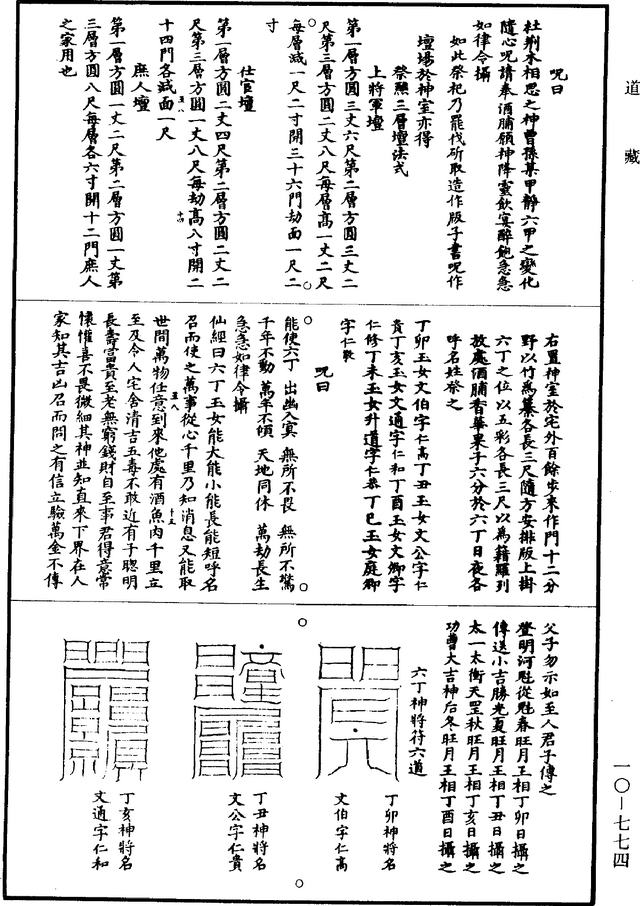 道藏
呪曰
杜荆木相思之神曹孫某甲靜六甲之變化
隨心呪請奉酒脯願神降靈飲宴醉飽急急
如律令攝
如此祭祀乃罷伐所取造作版子書呪作
壇場於神室亦得
祭醮三層壇法式
上將軍壇
第一層方圓三丈六尺第二層方圓三丈二
尺第三層方圓二丈八尺每層高一丈二尺
每層減一尺二寸開三十六門劫面一尺二
寸
仕官壇
第一層方圓二丈四尺第二層方圓二丈二
尺第三層方圓一丈八尺每劫高八寸開二
十四門各減面一尺
庶人壇
第一層方圓一丈二尺第二層方圓一丈第
三層方圓八尺每層各六寸開十二門庶人
之家用也
右置神室於宅外百餘步來作門十二分
野以竹爲纂各長三尺隨方安排版上掛
六丁之位以五彩各長三尺以爲籍羅列
教處酒脯香華果子六分於六丁日夜各
呼名姓祭之
丁卯玉女文伯字仁高丁丑玉女文公字仁
貴丁亥玉女文通字仁和丁酉玉女文卿字
仁修丁未玉女升道字仁恭丁巳玉女庭卿
字仁敬
呪曰
能使六丁 出幽入冥 無所不畏 無所不驚
千年不動 萬年不傾 天地同休 萬劫長生
急急如律令攝
仙經曰六丁玉女能大能小能長能短呼名
召而使之萬事從心千里乃知消息又能取
世間萬物任意到來他處有酒魚肉千里立
至及令人宅舍清吉五毒不敢近有子聰明
長壽富貴至老無窮錢財自至事君得意常
懷懽喜不畏微細其神並知直來下界在人
家知其吉凶召而問之有信立驗萬金不傳
父子勿示如至人君子傳之
登明河魁從魁春旺月王相丁卯日攝之
傳送小吉勝光夏旺月王相丁丑日攝之
太一太衝天罡秋旺月王相丁亥日攝之
功曹大吉神后冬旺月王相丁酉日攝之
六丁神將符六道
丁卯神將名
文伯字仁高
丁丑神將名
文公字仁貴
丁亥神將名
文通字仁和
一〇—七七四